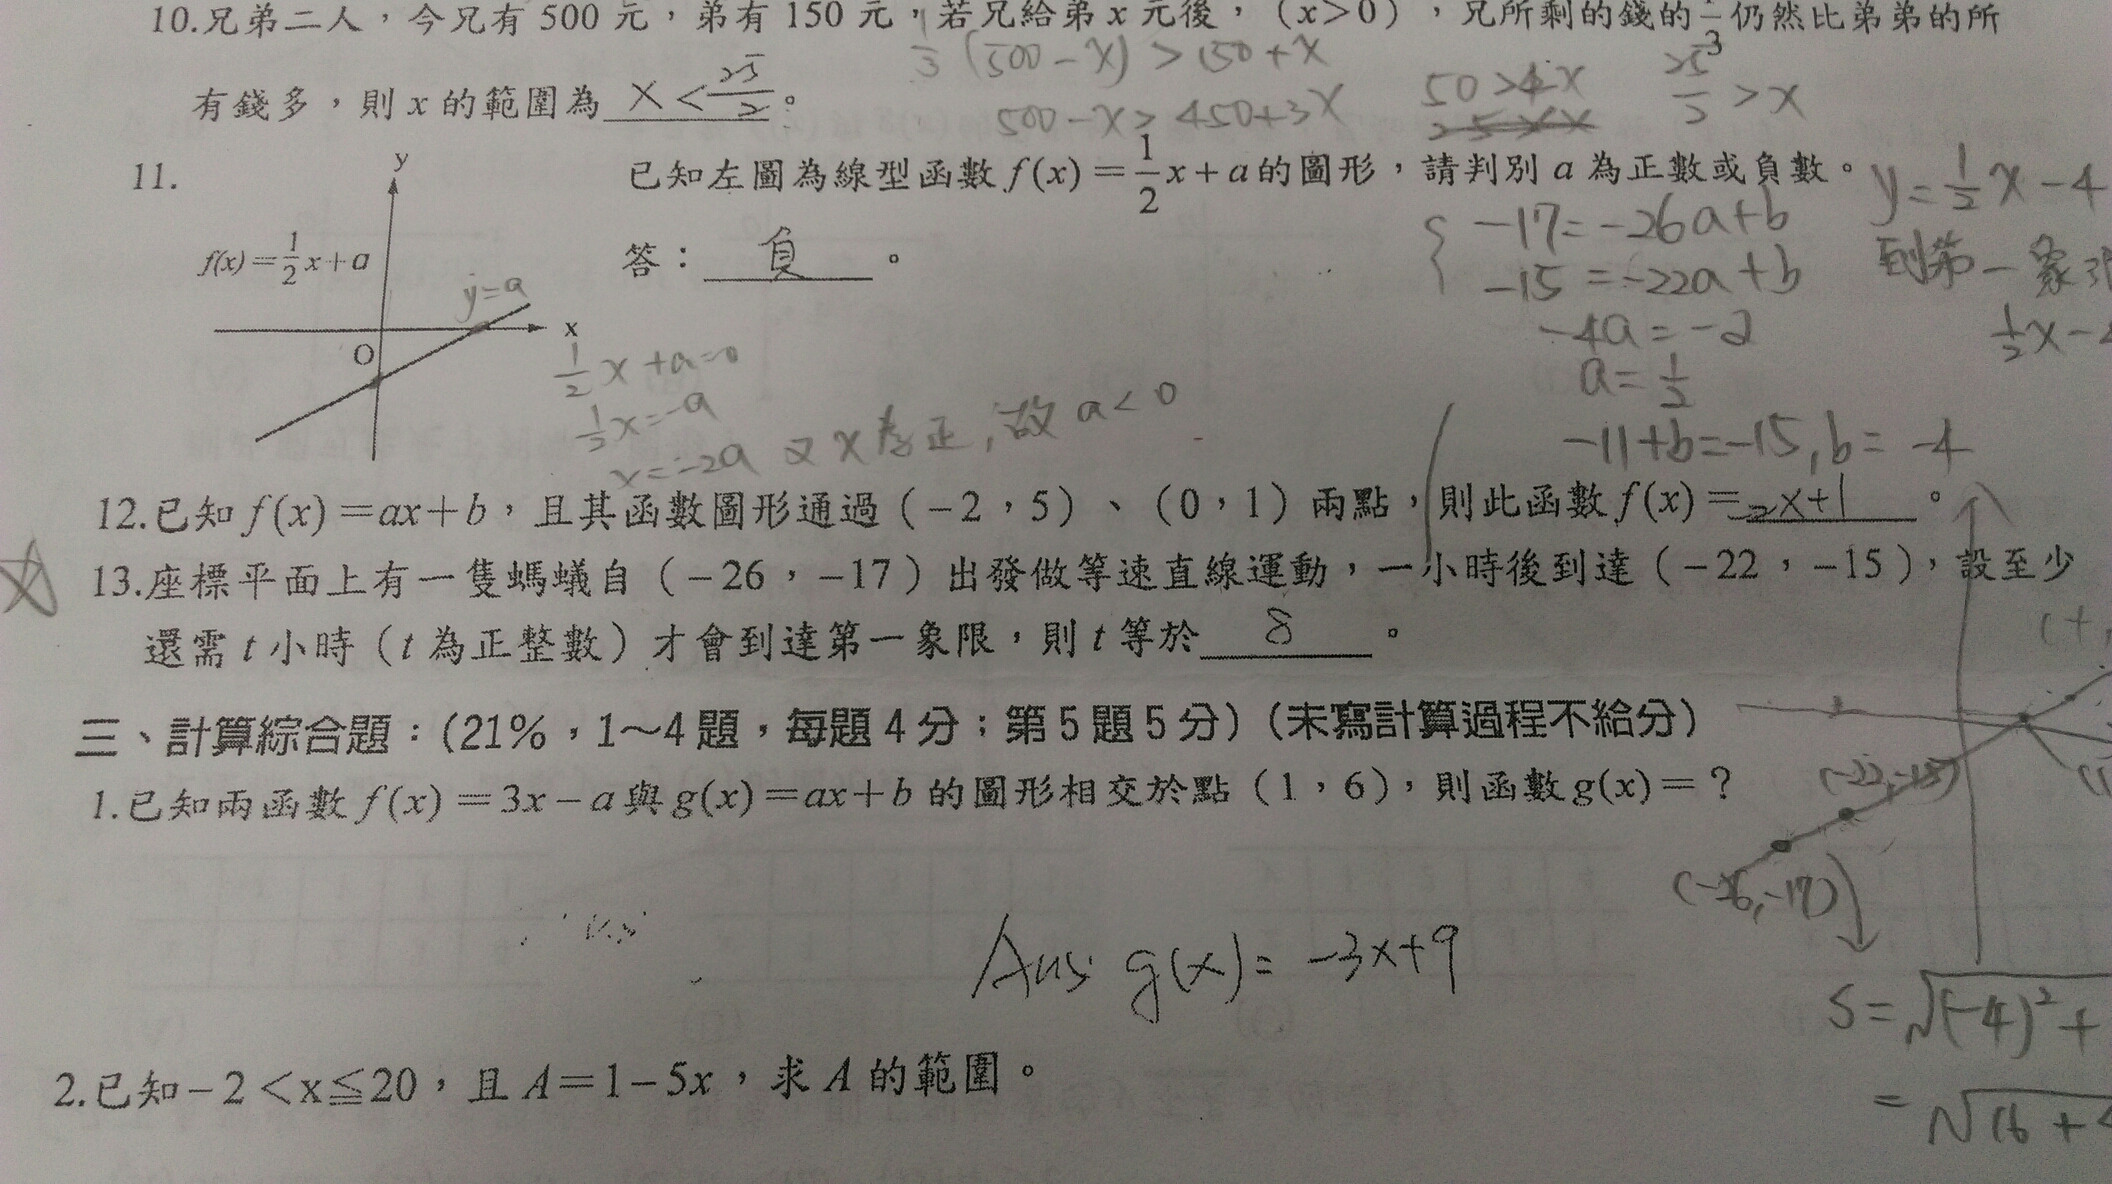 10.兄弟二人，今兄有 500 元，弟有 150 元，若兄給弟 x 元後，（x>0），兄所剩的錢的 1/3 仍然比弟弟的所
1/3 (500-x) > 150+x
有錢多，則 x 的範圍為 x<25/2 。
500-x > 450+3x
50>4x
25/2 > x
11.
y
已知左圖為線型函數 f(x)=1/2x+a 的圖形，請判別 a 為正數或負數。
y=1/2x-4
f(x)=1/2x+a
答：負。
-17=-26a+b
-15=-22a+b
到第一象
y=a
x
O
-4a=-2
1/2x-4
1/2x+a=0
a=1/2
1/2x=-a
x=-2a 又x為正,故a<0
-11+b=-15,b=-4
12.已知 f(x)=ax+b，且其函數圖形通過（-2，5）、（0，1）兩點，則此函數 f(x)=-2x+1。
13.座標平面上有一隻螞蟻自（-26，-17）出發做等速直線運動，一小時後到達（-22，-15），設至少
還需 t 小時（t 為正整數）才會到達第一象限，則 t 等於 8 。
(+,
三、計算綜合題：(21%，1～4題，每題4分；第5題5分)(未寫計算過程不給分)
1.已知兩函數 f(x)=3x-a 與 g(x)=ax+b 的圖形相交於點（1，6），則函數 g(x)=？
(-22,-15)
(-26,-17)
Ans: g(x)=-3x+9
S=√(-4)²+
2.已知-2<x≦20，且 A=1-5x，求 A 的範圍。
=√16+4